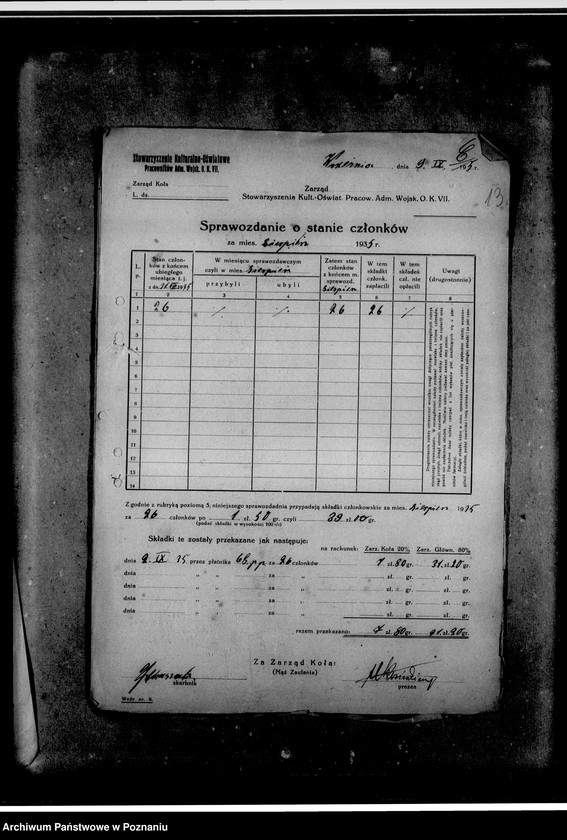 Stowarzyszenie Kulturalno-Oświatowe
Pracowników Adm. Wojsk. O. K. VII.
Września, dnia 9. IX. 1935 r.
13
Zarząd Koła
L. dz.
Zarząd
Stowarzyszenia Kult.-Oświat. Pracow. Adm. Wojsk. O. K. VII.
Sprawozdanie o stanie członków
za mies. sierpień 1935 r.
L. p.
Stan członków z końcem ubiegłego miesiąca t. j. z dn. 31.VII 1935
W miesiącu sprawozdawczym czyli w mies. sierpień
przybyli
ubyli
Zatem stan członków z końcem m. sprawozd. sierpień
W tem składki członk. zapłacili
W tem składek czł. nie opłacili
Uwagi (drugostonnie)
1 2 3 4 5 6 7 8
1 26 ./. ./. 26 26 ./.
2
3
4
5
6
7
8
9
10
11
12
13
14
Zgodnie z rubryką poziomą 5, niniejszego sprawozdania przypadają składki członkowskie za mies. sierpień 1935
za 26 członków po 1 zł. 50 gr. czyli 39 zł. 00 gr.
(podać składki w wysokości 100%)
Składki te zostały przekazane jak następuje:
na rachunek: Zarz. Koła 20% Zarz. Główn. 80%
dnia 9. IX 35 przez płatnika 68. p.p. za 26 członków 7 zł. 80 gr. 31 zł. 20 gr.
dnia " " za " zł. gr. zł. gr.
dnia " " za " zł. gr. zł. gr.
dnia " " za " zł. gr. zł. gr.
dnia " " za " zł. gr. zł. gr.
razem przekazano: 7 zł. 80 gr. 31 zł. 20 gr.
Za Zarząd Koła:
(Mąż Zaufania)
skarbnik
prezes
Wzór nr. 8.
Archiwum Państwowe w Poznaniu